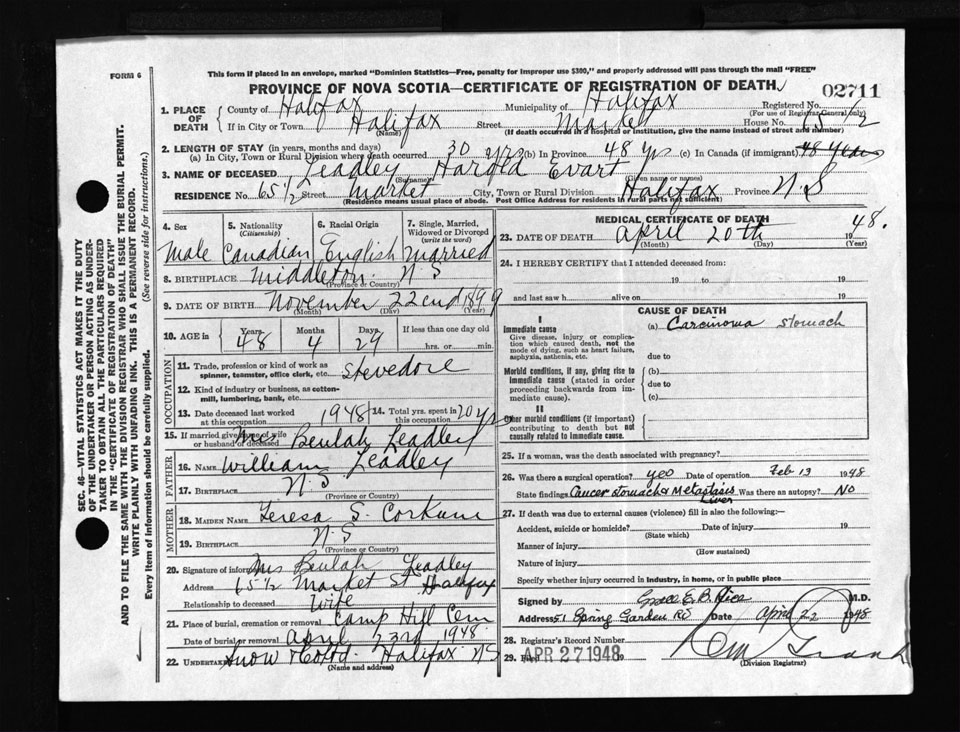 FORM 6
This form if placed in an envelope, marked "Dominion Statistics—Free, penalty for improper use $300," and properly addressed will pass through the mail "FREE"
PROVINCE OF NOVA SCOTIA—CERTIFICATE OF REGISTRATION OF DEATH
02711
1. PLACE OF DEATH
County of Halifax Municipality of Halifax Registered No.
(For use of Registrar General only)
If in City or Town Halifax Street Market House No. 65 1/2
(Name) (If death occurred in a hospital or institution, give the name instead of street and number)
2. LENGTH OF STAY (in years, months and days)
(a) In City, Town or Rural Division where death occurred 30 yrs (b) In Province 48 yrs (c) In Canada (if immigrant) 48 years
3. NAME OF DECEASED Leadley Harold Evart
(Surname) (Given names or names)
RESIDENCE No. 65 1/2 Street Market City, Town or Rural Division Halifax Province N.S
(Residence means usual place of abode. Post Office Address for residents in rural parts not sufficient)
4. Sex 5. Nationality (Citizenship) 6. Racial Origin 7. Single, Married, Widowed or Divorced (write the word)
Male Canadian English Married
8. BIRTHPLACE Middleton N S
(Province or Country)
9. DATE OF BIRTH November 22end 1899
(Month) (Day) (Year)
10. AGE in Years Months Days If less than one day old
48 4 29 hrs. or min.
OCCUPATION
11. Trade, profession or kind of work as spinner, teamster, office clerk, etc. Stevedore
12. Kind of industry or business, as cotton-mill, lumbering, bank, etc.
13. Date deceased last worked at this occupation 1948 14. Total yrs. spent in this occupation 20 yrs
15. If married give name of wife or husband of deceased Mrs Beulah Leadley
FATHER
16. NAME William Leadley
17. BIRTHPLACE N.S
(Province or Country)
MOTHER
18. MAIDEN NAME Teresa S. Corkum
19. BIRTHPLACE N.S
(Province or Country)
20. Signature of informant Mrs Beulah Leadley
Address 65 1/2 Market St Halifax
Relationship to deceased Wife
21. Place of burial, cremation or removal Camp Hill Cem
Date of burial or removal April 23rd 1948
22. UNDERTAKER Snow & Co Ltd. Halifax NS
(Name and address)
MEDICAL CERTIFICATE OF DEATH
23. DATE OF DEATH April 20th 1948.
(Month) (Day) (Year)
24. I HEREBY CERTIFY that I attended deceased from:
19 to 19
and last saw h alive on 19
CAUSE OF DEATH
I
Immediate cause (a) Carcinoma stomach
Give disease, injury or complication which caused death, not the mode of dying, such as heart failure, asphyxia, asthenia, etc.
due to
Morbid conditions, if any, giving rise to immediate cause (stated in order proceeding backwards from immediate cause).
(b)
due to
(c)
II
Other morbid conditions (if important) contributing to death but not causally related to immediate cause.
25. If a woman, was the death associated with pregnancy?
26. Was there a surgical operation? yes Date of operation Feb 13 1948
State findings Cancer stomach & Metastasis Liver Was there an autopsy? No
27. If death was due to external causes (violence) fill in also the following:—
Accident, suicide or homicide? Date of injury 19
(State which)
Manner of injury
(How sustained)
Nature of injury
Specify whether injury occurred in industry, in home, or in public place
Signed by Grace E. B. Rice M.D.
Address 51 Spring Garden Rd Date April 22 1948
28. Registrar's Record Number
29. Filed APR 27 1948 19
(Division Registrar)
SEC. 46—VITAL STATISTICS ACT MAKES IT THE DUTY
OF THE UNDERTAKER OR PERSON ACTING AS UNDER-
TAKER TO OBTAIN ALL THE PARTICULARS REQUIRED
IN THE "CERTIFICATE OF REGISTRATION OF DEATH"
AND TO FILE THE SAME WITH THE DIVISION REGISTRAR WHO SHALL ISSUE THE BURIAL PERMIT.
WRITE PLAINLY WITH UNFADING INK. THIS IS A PERMANENT RECORD.
Every item of information should be carefully supplied. (See reverse side for instructions.)